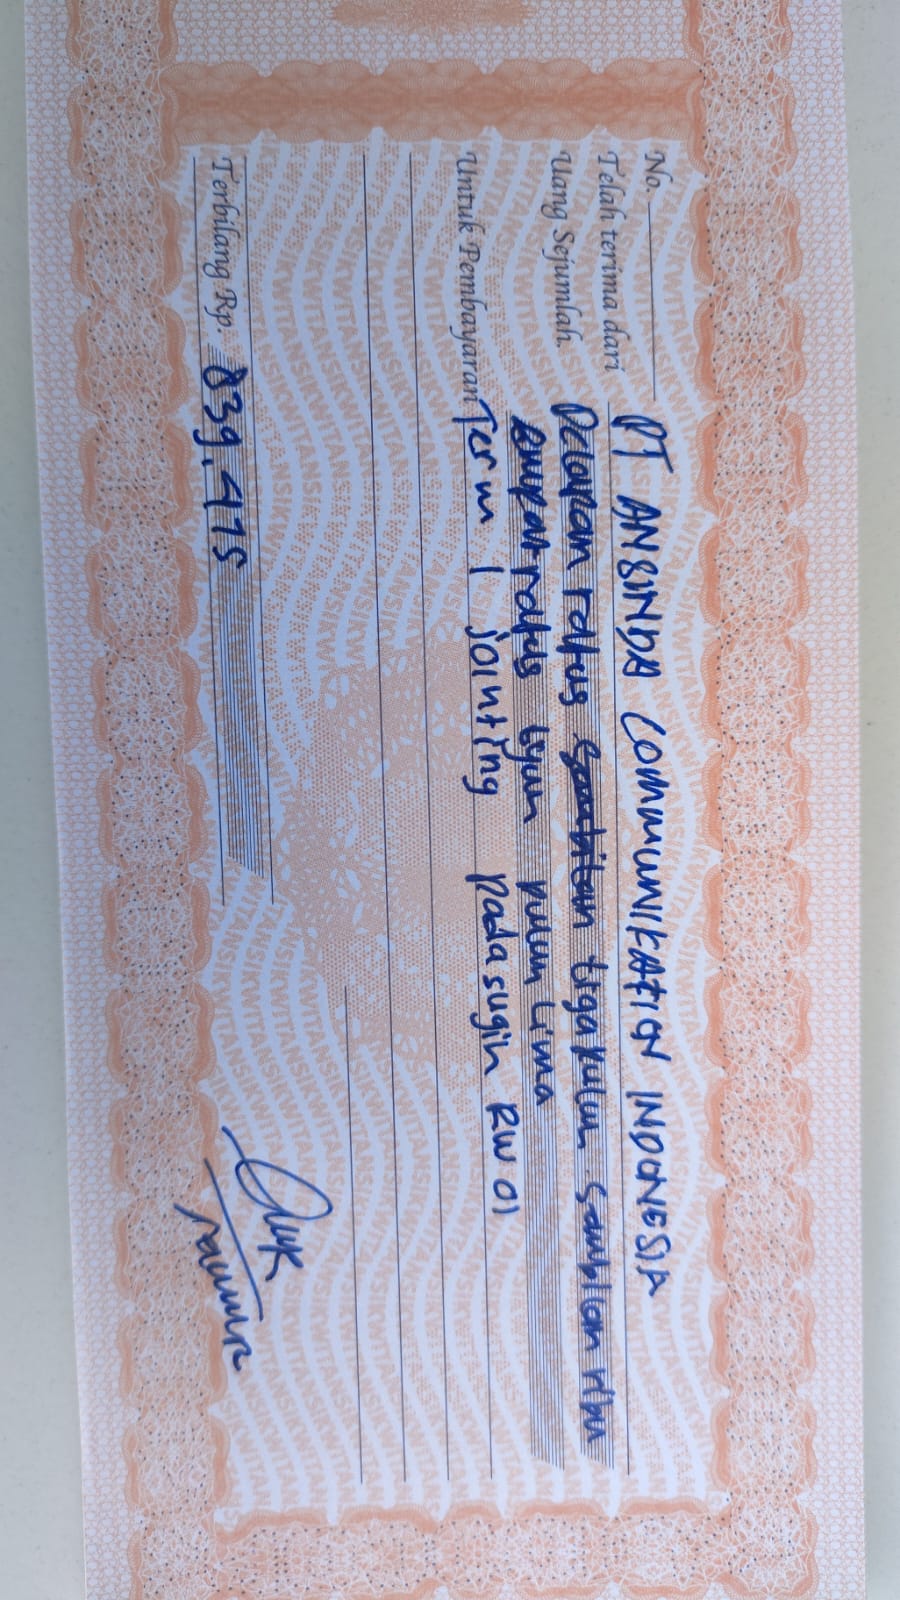 No.
Telah terima dari PT ANSINDA COMMUNIKATION INDONESIA
Uang Sejumlah. Delapan ratus tiga puluh sambilan ribu
empat ratus tujuh puluh lima
Untuk Pembayaran Term 1 jointing padasugih RW 01
Terbilang Rp. 839.475